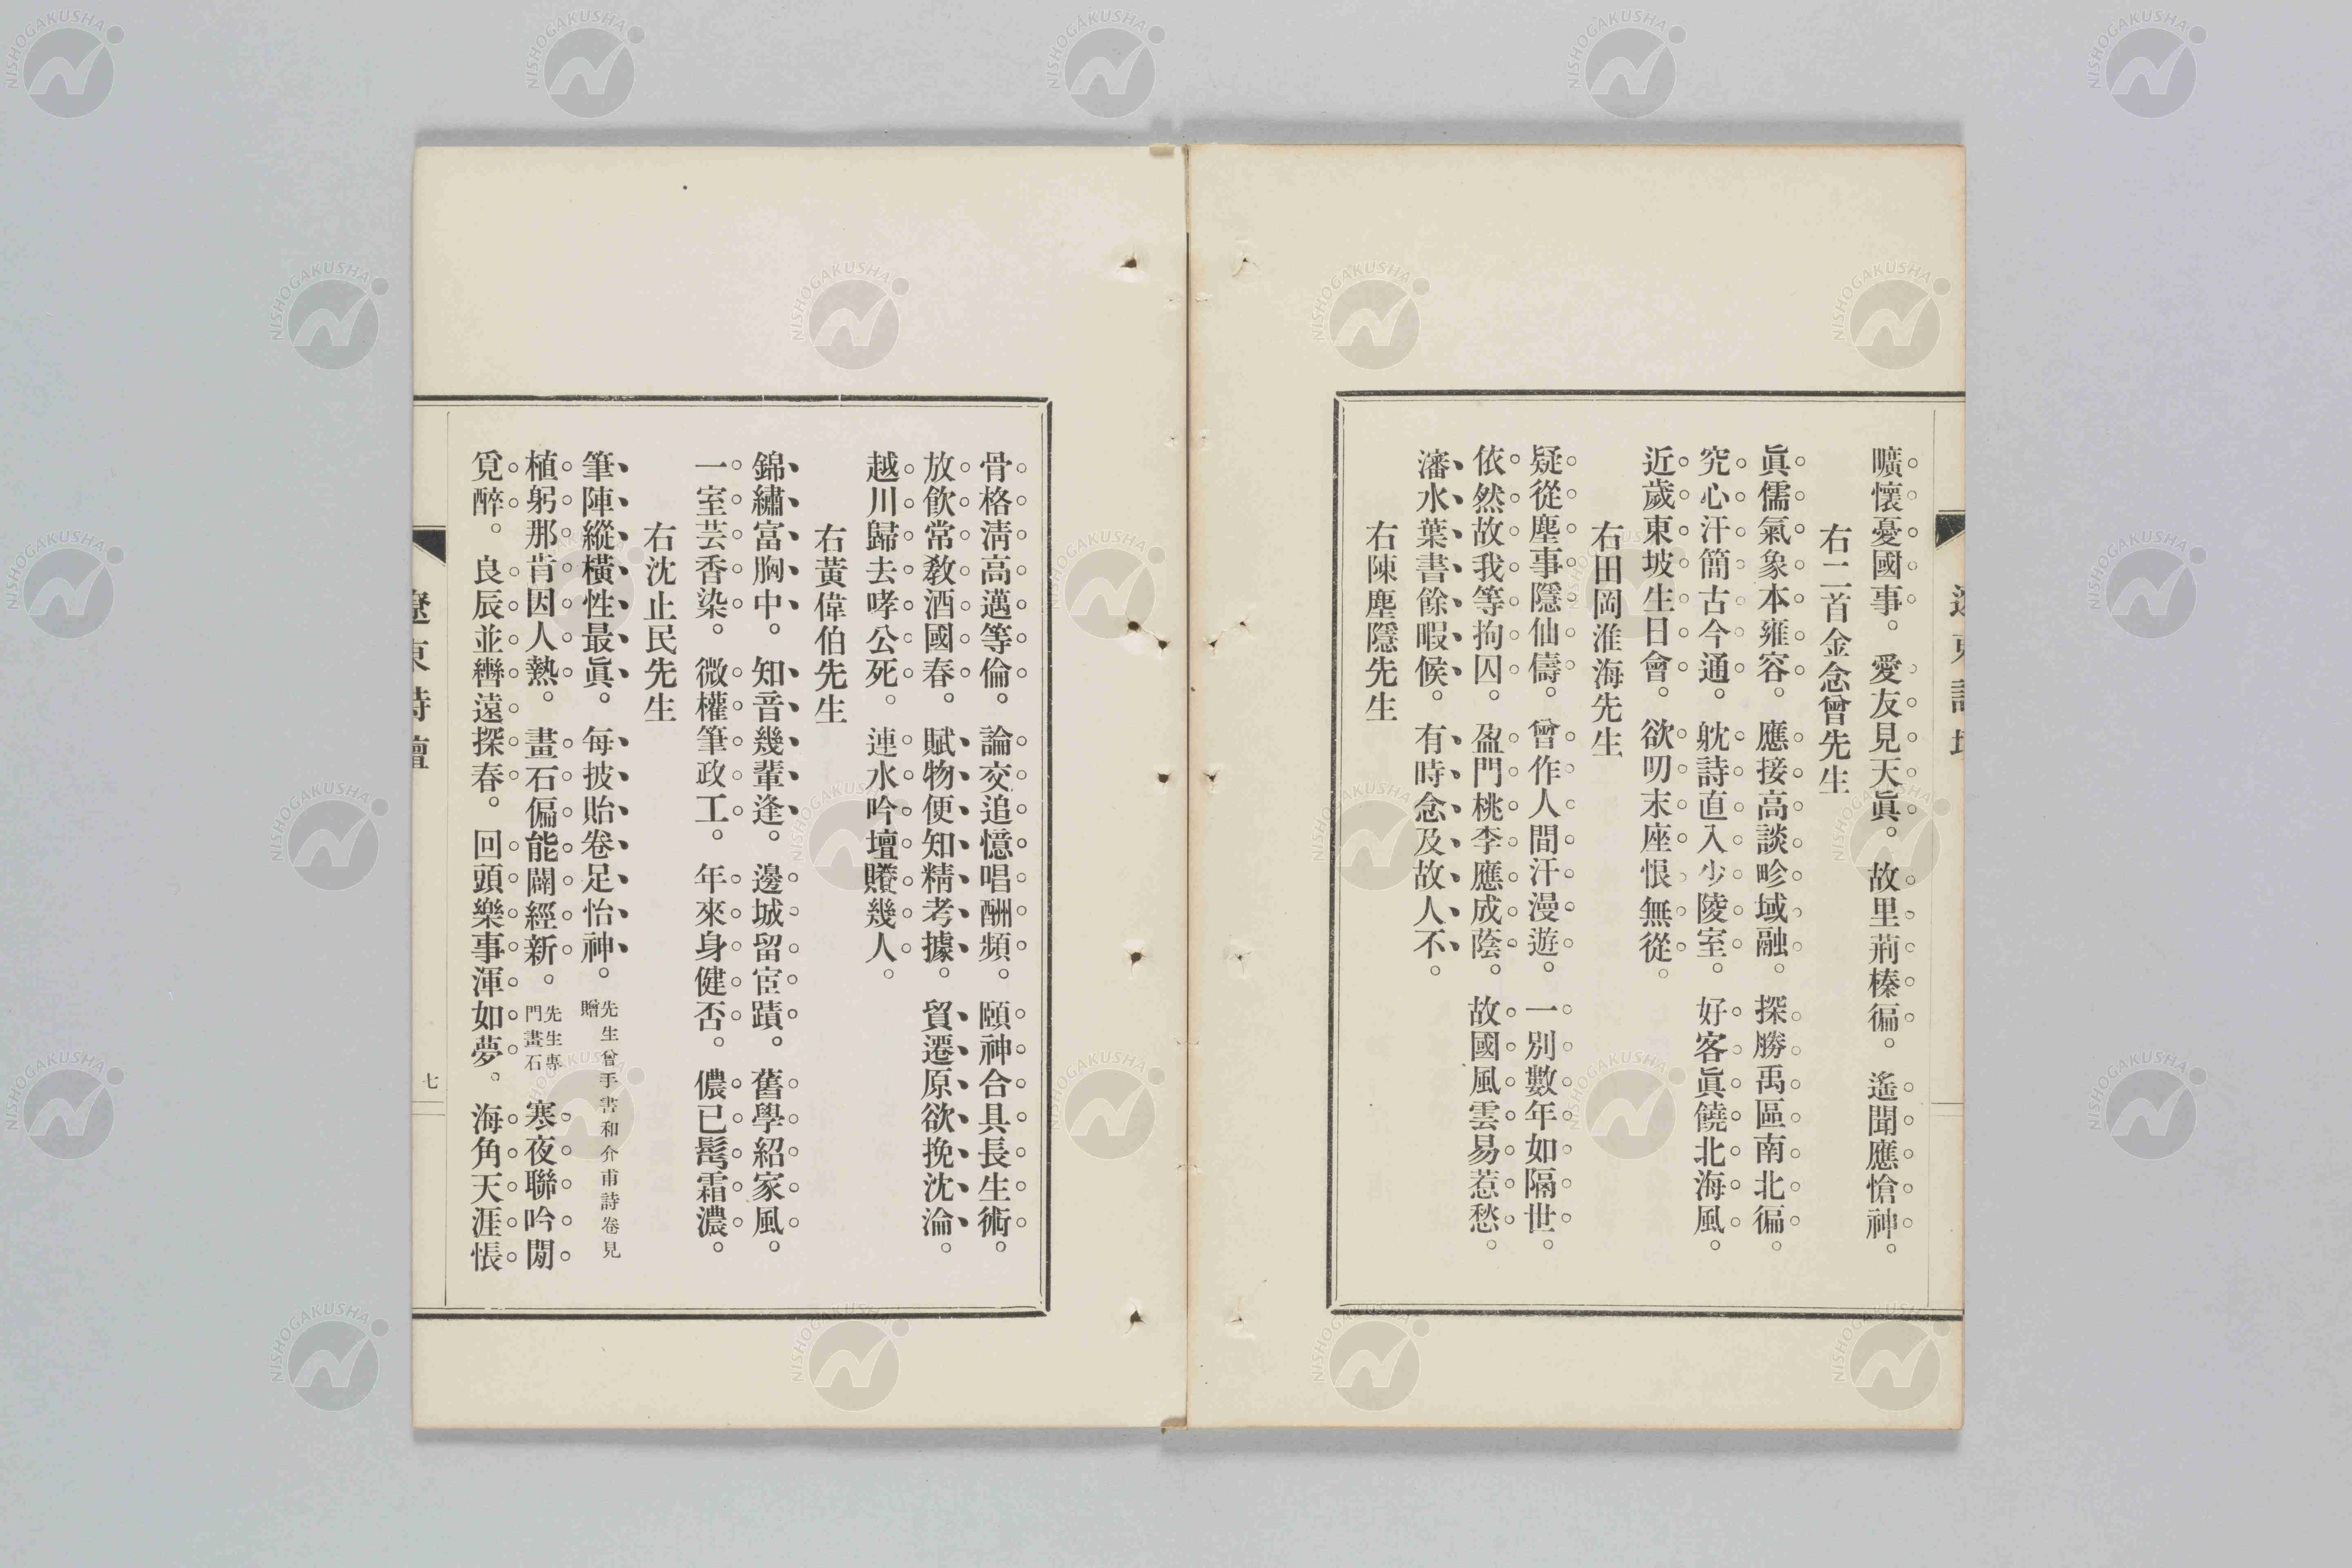 曠懷憂國事。愛友見天眞。故里荊榛徧。遙聞應愴神。
右二首金念曾先生
眞儒氣象本雍容。應接高談畛域融。探勝禹區南北徧。
究心汗簡古今通。躭詩直入少陵室。好客眞饒北海風。
近歲東坡生日會。欲叨末座恨無從。
右田岡淮海先生
疑從塵事隱仙儔。曾作人間汗漫遊。一別數年如隔世。
依然故我等拘囚。盈門桃李應成蔭。故國風雲易惹愁。
瀋水葉書餘暇候。有時念及故人不。
右陳塵隱先生
骨格淸高邁等倫。論交追憶唱酬頻。頤神合具長生術。
放飮常敎酒國春。賦物便知精考據。貿遷原欲挽沈淪。
越川歸去哮公死。連水吟壇賸幾人。
右黃偉伯先生
錦繡富胸中。知音幾輩逢。邊城留宦蹟。舊學紹家風。
一室芸香染。微權筆政工。年來身健否。儂已髩霜濃。
右沈止民先生
筆陣縱橫性最眞。每披貽卷足怡神。先生曾手書和介甫詩卷見贈
植躬那肯因人熱。畫石偏能闢經新。先生專門畫石 寒夜聯吟閒
覓醉。良辰並轡遠探春。回頭樂事渾如夢。海角天涯悵
遼東詩壇
七